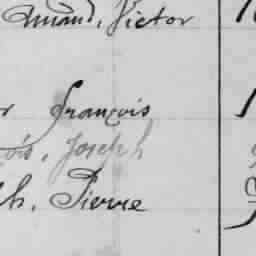 Amand, Victor
r François
ois, Joseph
ph, Pierre